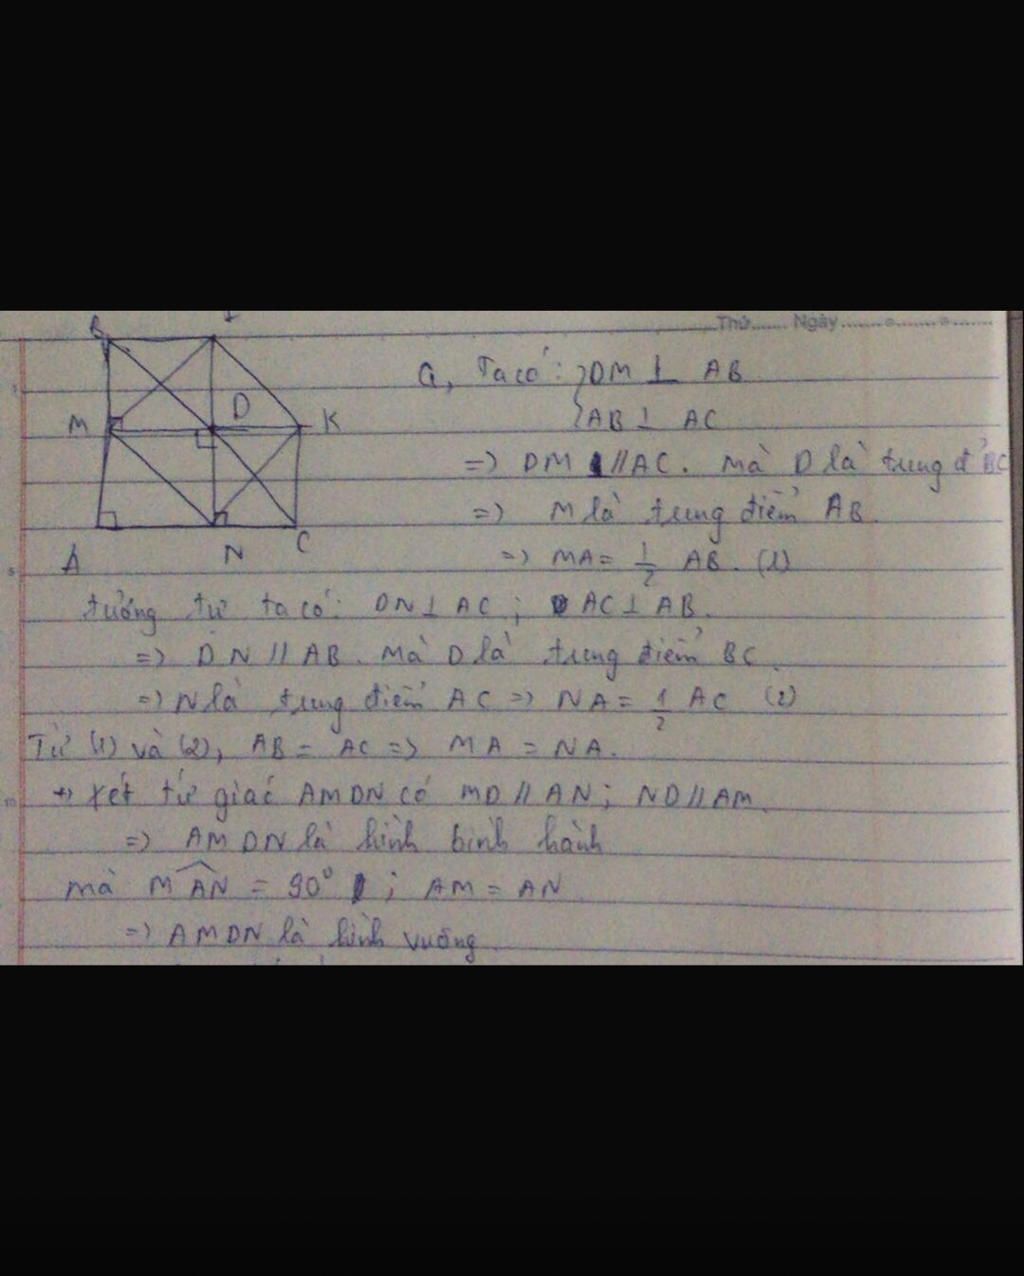 Thứ....... Ngày...................
B I
a, Ta có: { DM ⊥ AB
M D K
{ AB ⊥ AC
=> DM // AC. mà D là trung đ' BC
=> M là trung điểm AB.
A N C
=> MA = 1/2 AB. (1)
tương tự ta có: DN ⊥ AC; AC ⊥ AB.
=> DN // AB. Mà D là trung điểm BC
=> N là trung điểm AC => NA = 1/2 AC (2)
Từ (1) và (2), AB = AC => MA = NA.
+) Xét tứ giác AMDN có MD // AN; ND // AM.
=> AMDN là hình bình hành
mà MAN = 90° ; AM = AN
=> AMDN là hình vuông.